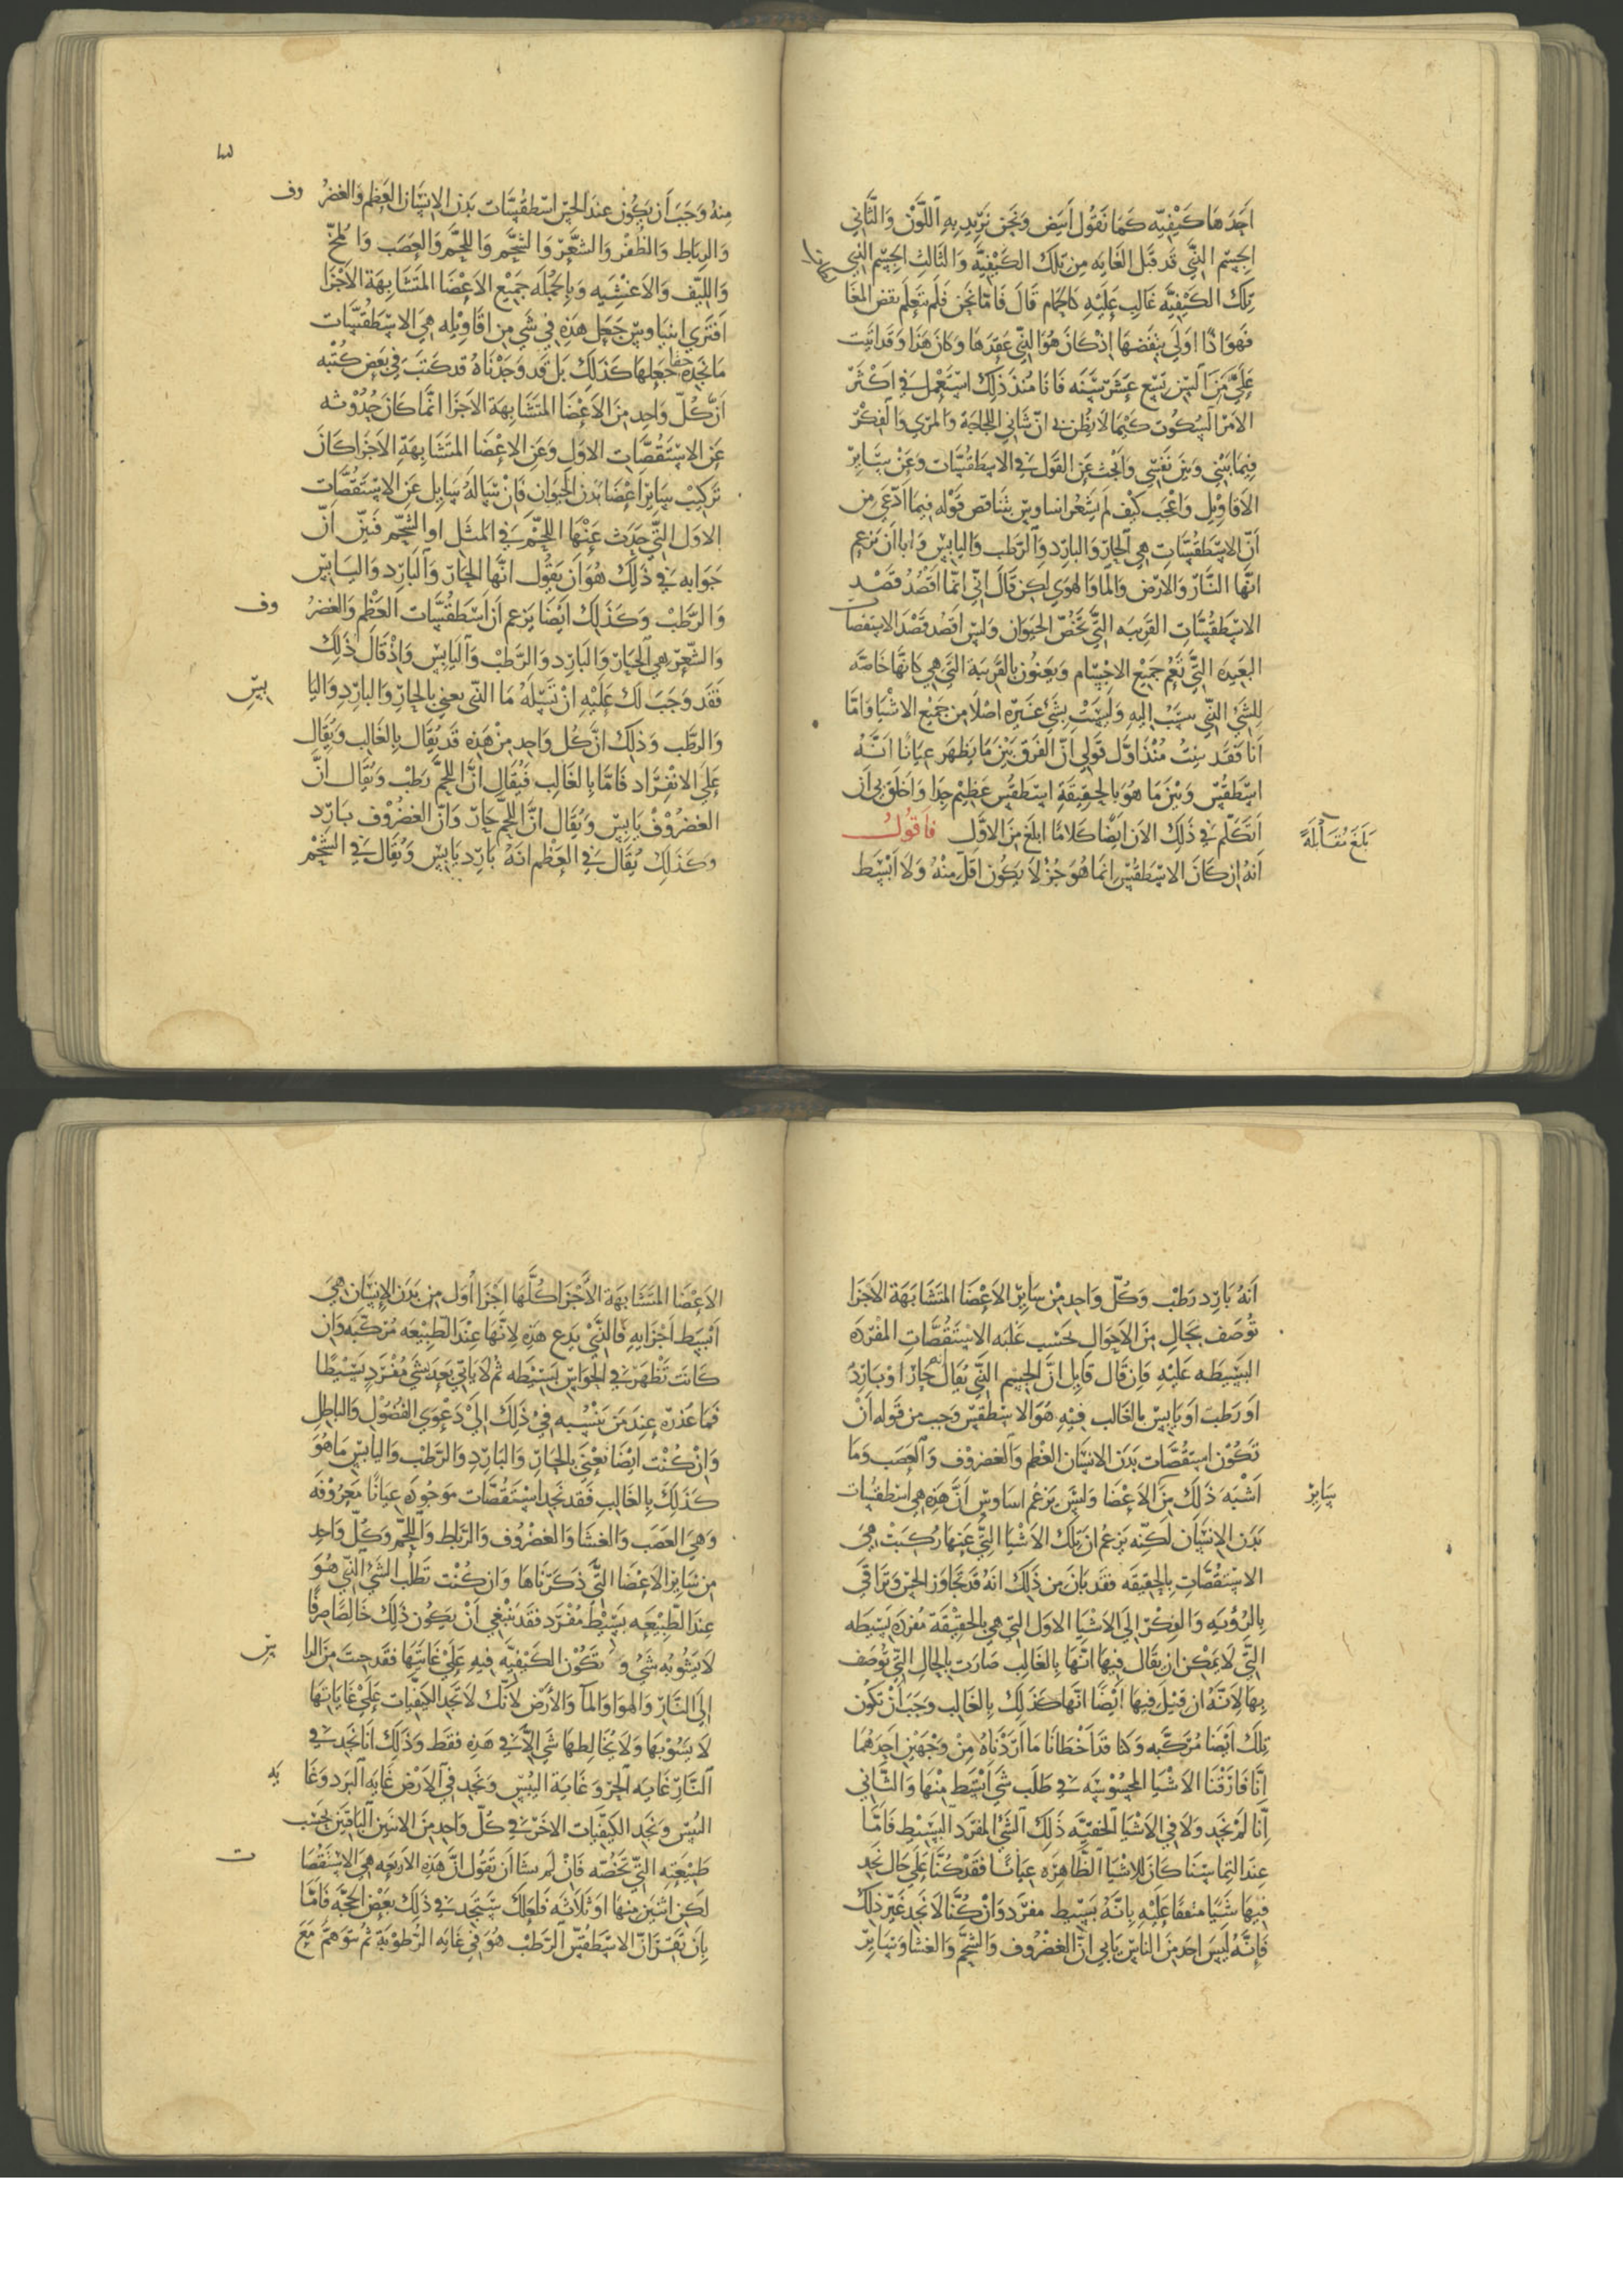 احدها كيفيه كما نقول ابيض ونحن نريد به اللون والثاني
الجسم الذي قد قبل الغايه من تلك الكيفيه والثالث الجسم الذي
تلك الكيفيه غالب عليه كالحمام قال فاما نحن فلم نتعلم نقض المغا
فهو اذًا اولي بنقضها اذ كان هو الذي عقدها وكان هذا وقد اتت
علي من السن تسع عشر سنه فانا منذ ذلك استعمل في اكثر
الامر السكوت كيما لا يظن بي ان شاني اللجاجة والمري والفكر
فيما بيني وبين نفسي والبحث عن القول في الاسطقسات وعن سائر
الاقاويل واعجب كيف لم يشعر اساوس بتناقض قوله فيما ادعي من
ان الاسطقسات هي الحار والبارد والرطب واليابس وابا ان يزعم
انها النار والارض والما والهوي لكن قال اني انما اقصد قصد
الاسطقسات القريبه التي تخص الحيوان وليس اقصد قصد الاسقصات
البعيده التي تعم جميع الاجسام ويعنون بالقريبة التي هي كانها خاصه
للشي الذي سب اليه وليست بشي غيره اصلا من جميع الاشيا واما
انا فقد بينت منذ اول قولي ان الفرق بين ما يظهر عيانًا انه
اسطقس وبين ما هو بالحقيقة اسطقس عظيم جدا واخلق بي ان
اتكلم في ذلك الان ايضًا كلامًا ابلغ من الاول فاقول
بلغ مقابلةً
انه ان كان الاسطقس انما هو جز لا يكون اقل منه ولا ابسط
منه وجب ان يكون عند الحس اسطقسات بدن الانسان العظم والغضروف
والرباط والظفر والشعر والشحم واللحم والعصب والمخ
والليف والاغشيه وبالجمله جميع الاعضا المتشابهة الاجزا
افتري اساوس جعل هذه في شي من اقاويله هي الاسطقسات
ما نجده حقا جعلها كذلك بل قد وجدناه قد كتب في بعض كتبه
ان كل واحد من الاعضا المتشابهة الاجزا انما كان حدوثه
عن الاستقصات الاول وعن الاعضا المتشابهة الاجزا كان
تركيب سائر اعضا بدن الحيوان فان ساله سايل عن الاستقصات
الاول التي حدث عنها اللحم في المثل او الشحم فبين ان
جوابه في ذلك هو ان يقول انها الحار والبارد واليابس
والرطب وكذلك ايضا يزعم ان اسطقسات العظم والغضروف
والشعر هي الحار والبارد والرطب واليابس واذ قال ذلك
فقد وجب لك عليه ان تسئله ما الذي يعني بالحار والبارد واليابس
والرطب وذلك ان كل واحد من هذه قد يقال بالغالب ويقال
علي الانفراد فاما بالغالب فيقال ان اللحم رطب ويقال ان
الغضروف يابس ويقال ان اللحم حار وان الغضروف بارد
وكذلك يقال في العظم انه بارد يابس ويقال في الشحم
انه بارد رطب وكل واحد من سائر الاعضا المتشابهة الاجزا
توصف بحال من الاحوال بحسب غلبه الاستقصات المفرده
البسيطه عليه فان قال قايل ان الجسم الذي يقال انه حار او بارد
او رطب او يابس بالغالب فيه هو الاسطقس وجب من قوله ان
تكون استقصات بدن الانسان العظم والغضروف والعصب وما
اشبه ذلك من سائر الاعضا وليس يزعم اساوس ان هذه هي اسطقسات
بدن الانسان لكنه يزعم ان تلك الاشيا التي عنها ركبت هي
الاستقصات بالحقيقه فقد بان من ذلك انه قد تجاوز الحس وتراقي
بالرويه والفكر الي الاشيا الاول التي هي بالحقيقة مفرده بسيطه
التي لا يمكن ان يقال فيها انها بالغالب صارت بالحال التي توصف
بها لانه ان قيل فيها ايضًا انها كذلك بالغالب وجب ان تكون
تلك ايضا مركبه وكنا قد اخطانا ما اردناه من وجهين احدهما
انا فارقنا الاشيا المحسوسه في طلب شي ابسط منها والثاني
انا لم نجد ولا في الاشيا الخفيه ذلك الشي المفرد البسيط فاما
عند التماسنا كان للاشيا الظاهره عيانًا فقد كنا علي حال نجد
فيها شيًا متفقا عليه بانه بسيط مفرد وان كنا لا نجد غير ذلك
فانه ليس احد من الناس يابي ان الغضروف والشحم والغشا وسائر
الاعضا المتشابهة الاجزا كلها اجزا اول من بدن الانسان هي
ابسط اجزايه فالذي يدع هذه لانها عند الطبيعه مركبه وان
كانت تظهر في الحواس بسيطه ثم لا ياتي بعد بشي مفرد بسيطًا
فما عذره عند من ينسبه في ذلك الي دعوي الفضول والباطل
وان كنت ايضا تعني بالحار والبارد والرطب واليابس ما هو
كذلك بالغالب فقد نجد استقصات موجوده عيانًا معروفه
وهي العصب والغشا والغضروف والرباط واللحم وكل واحد
من سائر الاعضا التي ذكرناها وان كنت تطلب الشي الذي هو
عند الطبيعه بسيط مفرد فقد ينبغي ان يكون ذلك خالصًا صرفًا
لا يشوبه شي وتكون الكيفيه فيه علي غايتها فقد جئت من الراس
الي النار والهوا والمآ والارض لانك لا تجد الكيفيات علي غاياتها
لا يشوبها ولا يخالطها شي الا في هذه فقط وذلك انا نجد في
النار غايه الحر وغاية اليبس ونجد في الارض غايه البرد وغايه
اليبس ونجد الكيفيات الاخر في كل واحد من الاثنين الباقيين بحسب
طبيعته التي تخصه فان لم تشا ان تقول ان هذه الاربعه هي الاستقصات
لكن اثنين منها او ثلاثه فلعلك ستجد في ذلك بعض الحجه فاما
بان تقر ان الاسطقس الرطب هو في غايه الرطوبة ثم تتوهم مع